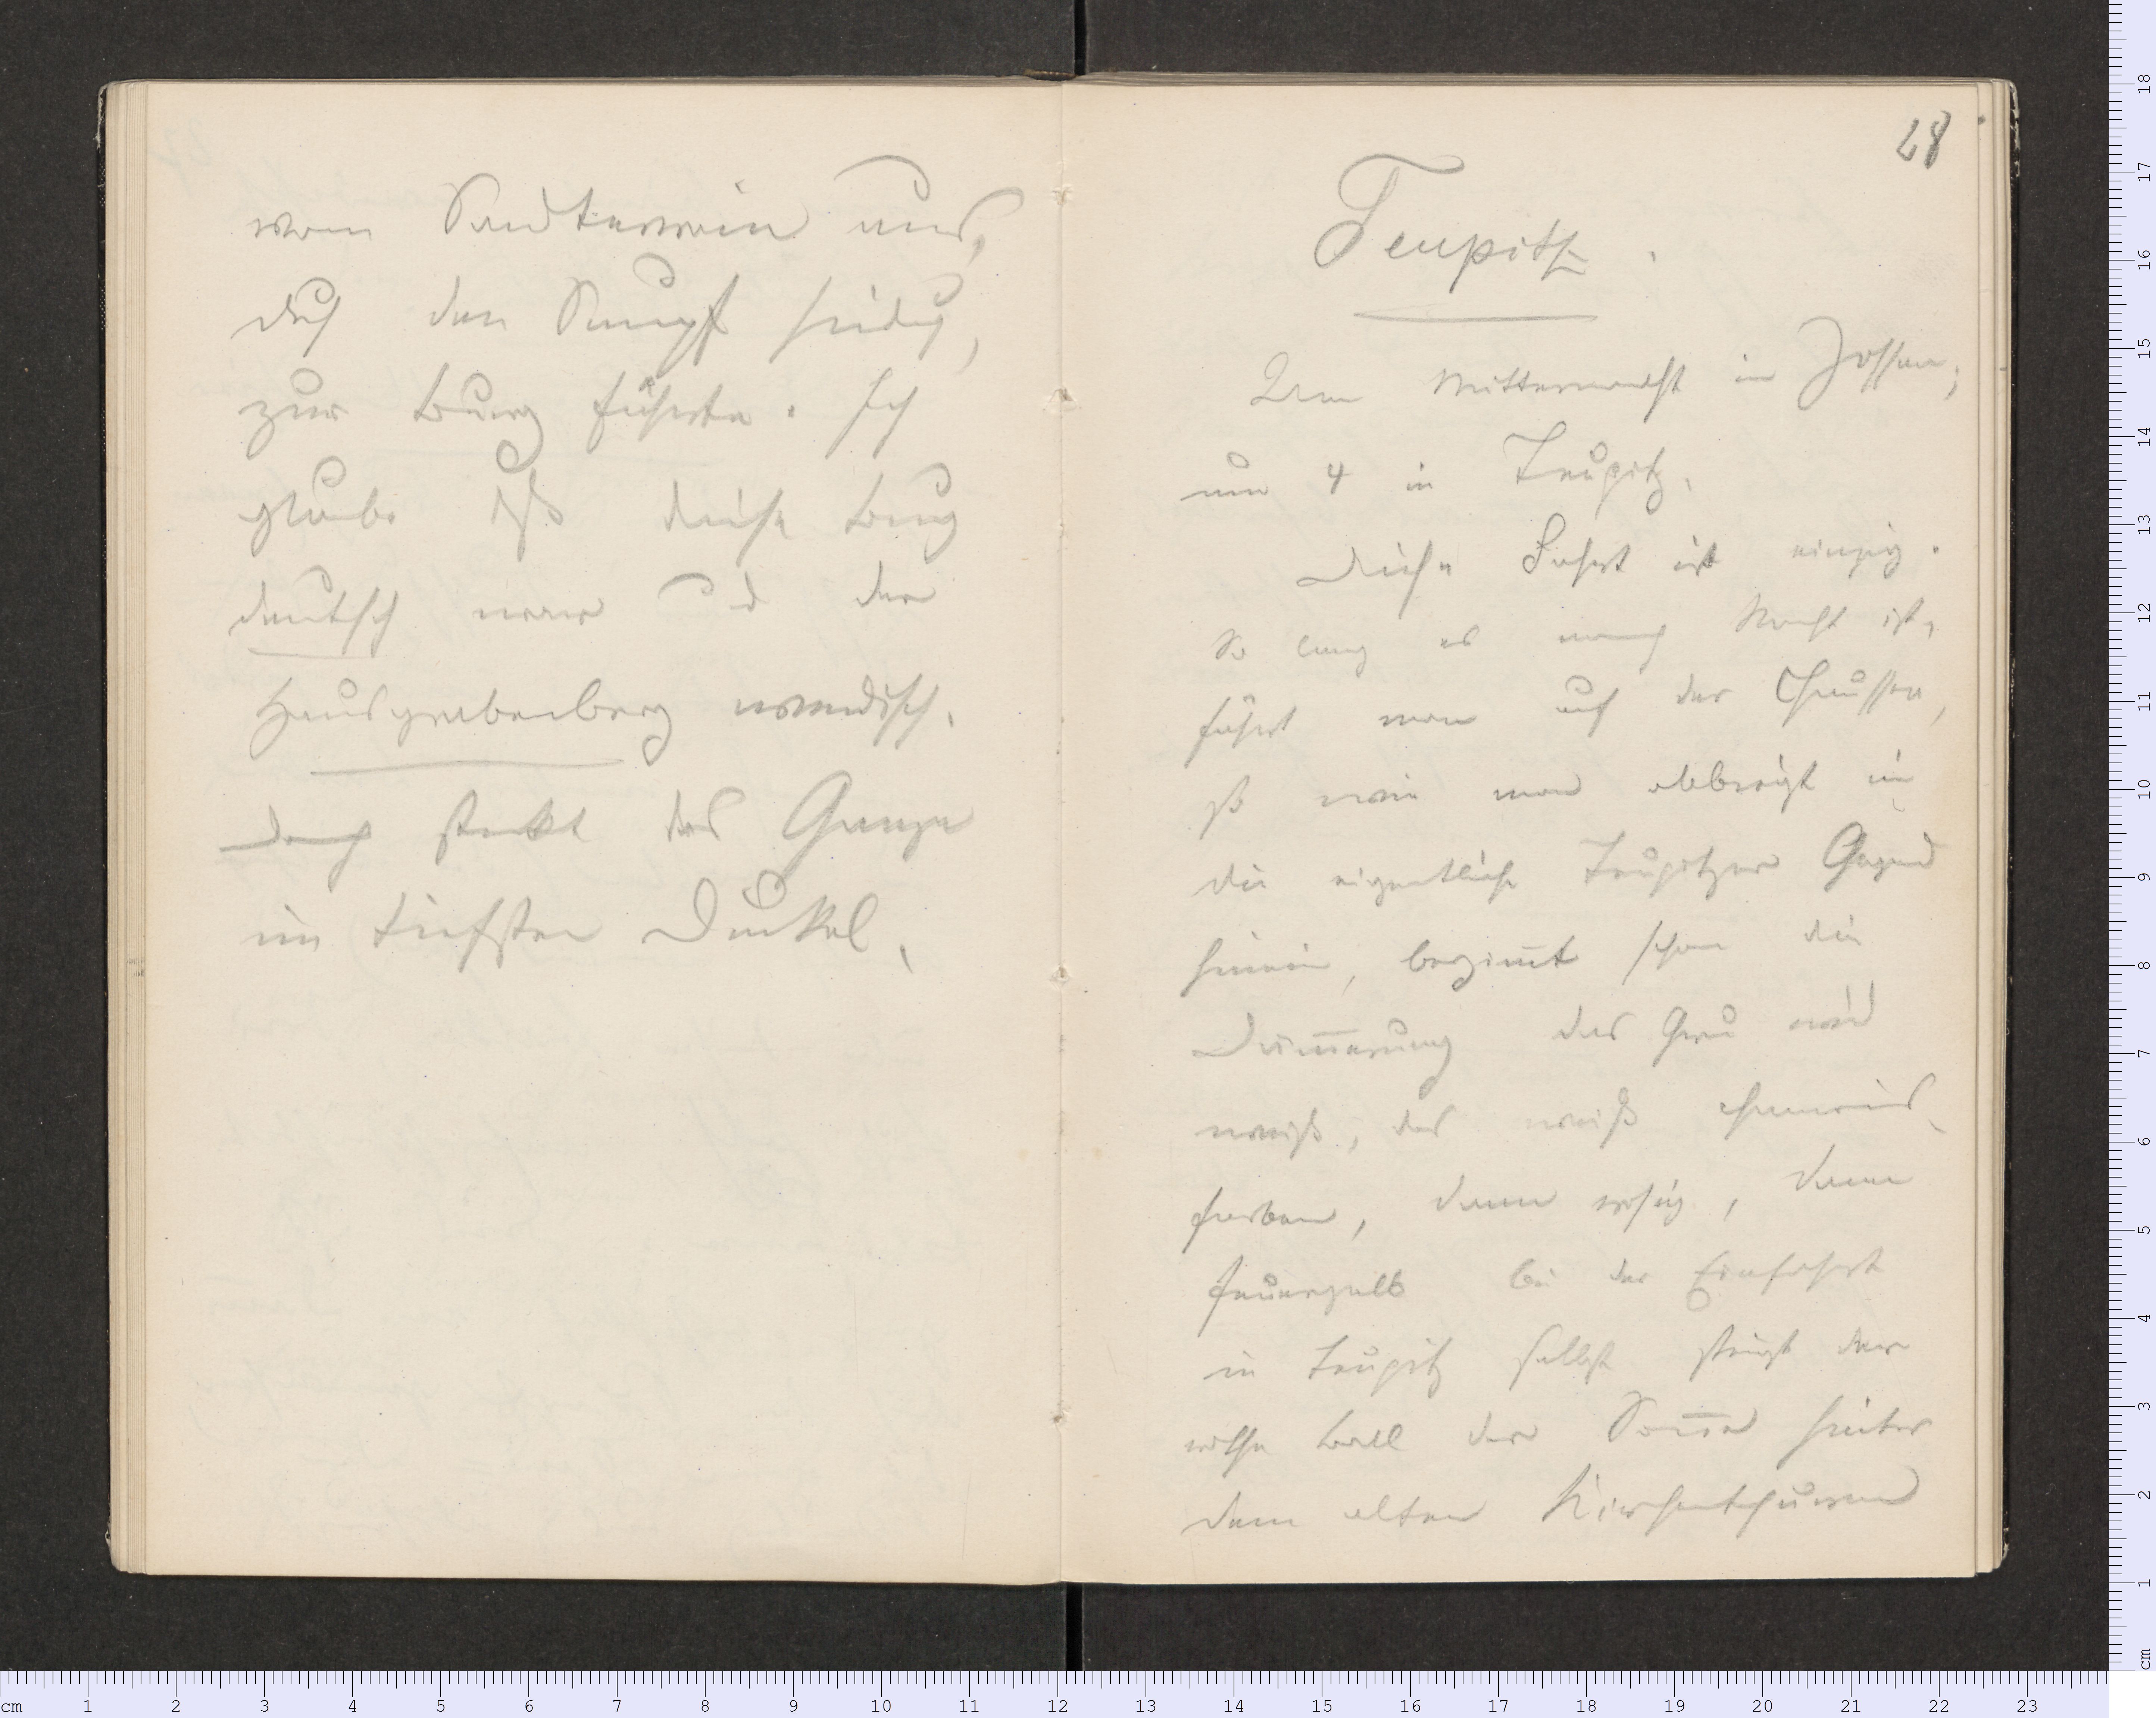 vom Sandterrain aus,
durch den Sumpf hindurch,
zur Burg führte. Ich
glaube dß diese Burg
deutsch war und der
Hausgrabenberg wendisch.
Doch steckt das Ganze
im tiefsten Dunkel.
28
Teupitz.
Um Mitternacht in Zossen;
um 4 in Teupitz.
Diese Fahrt ist einzig.
So lang es noch Nacht ist,
fährt man auf der Chaussee,
so wie man abbiegt in
die eigentliche Teupitzer Gegend
hinein, begiñt schon die
Däm̃erung das Grau wird
weiß, das weiß
farben, dann rosig, dann
feuergelb bei der Einfahrt
in Teupitz selbst steigt der
rothe Ball der Soñe hinter
dem alten Kirchenthurm